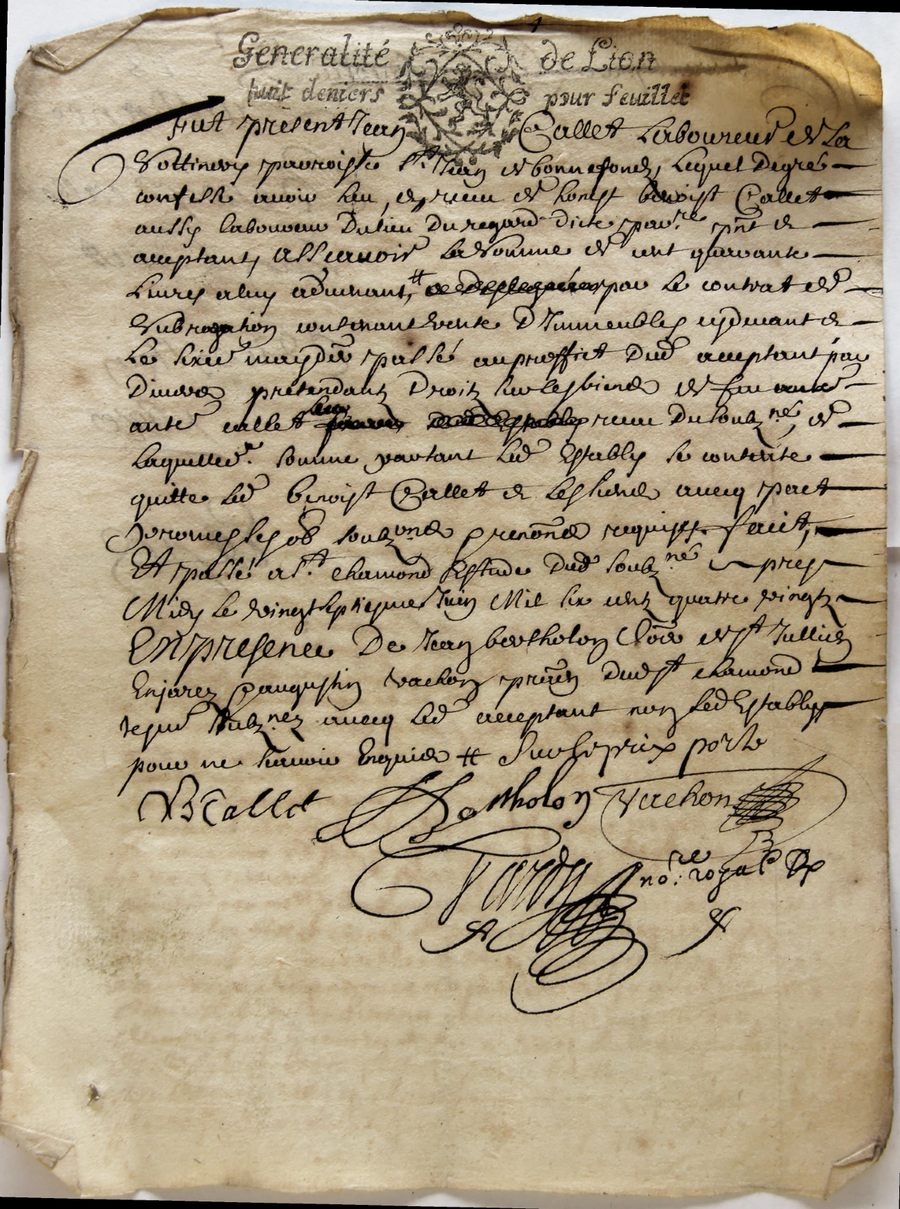 Generalité de Lion
huit deniers pour feuillet
Fut present Jean Callet Laboureur de La
parroisse St Jean de bonnefondz, Lequel De gre
confesse avoir heu et receu de honest benoist Callet
aussy laboureur Du lieu Du regard dicte parre pnt et
acceptant, Assavoir La somme de cent quarante
Livres a luy advenant, ++ par Le contrat de
Subrogation contenant vente D'Immeubles cydevant et
Le may der passé au proffict Dud acceptant par
Divers pretendantz Droitz sur les biens de feu
callet receu Du soubzne, de
Laquelle somme partant Led Estably se contente
quitte Led benoist Callet et Les siens avecq pact
soubzne requis. faict,
Et passé a St chamond Estude Dud soubzne apres
Midy le vingt septiesme Juin Mil six cent quatre vingtz
En presence De Jean bertholon Clerc de St Jullien
En Jarez & augustin vachon Dud St chamond
soubznez avecq Led acceptant non Led Estably
pour ne sçavoir Enquis ++ Sur Le prix porté
B Callet Bertholon Vachon
Tardy
nore royal